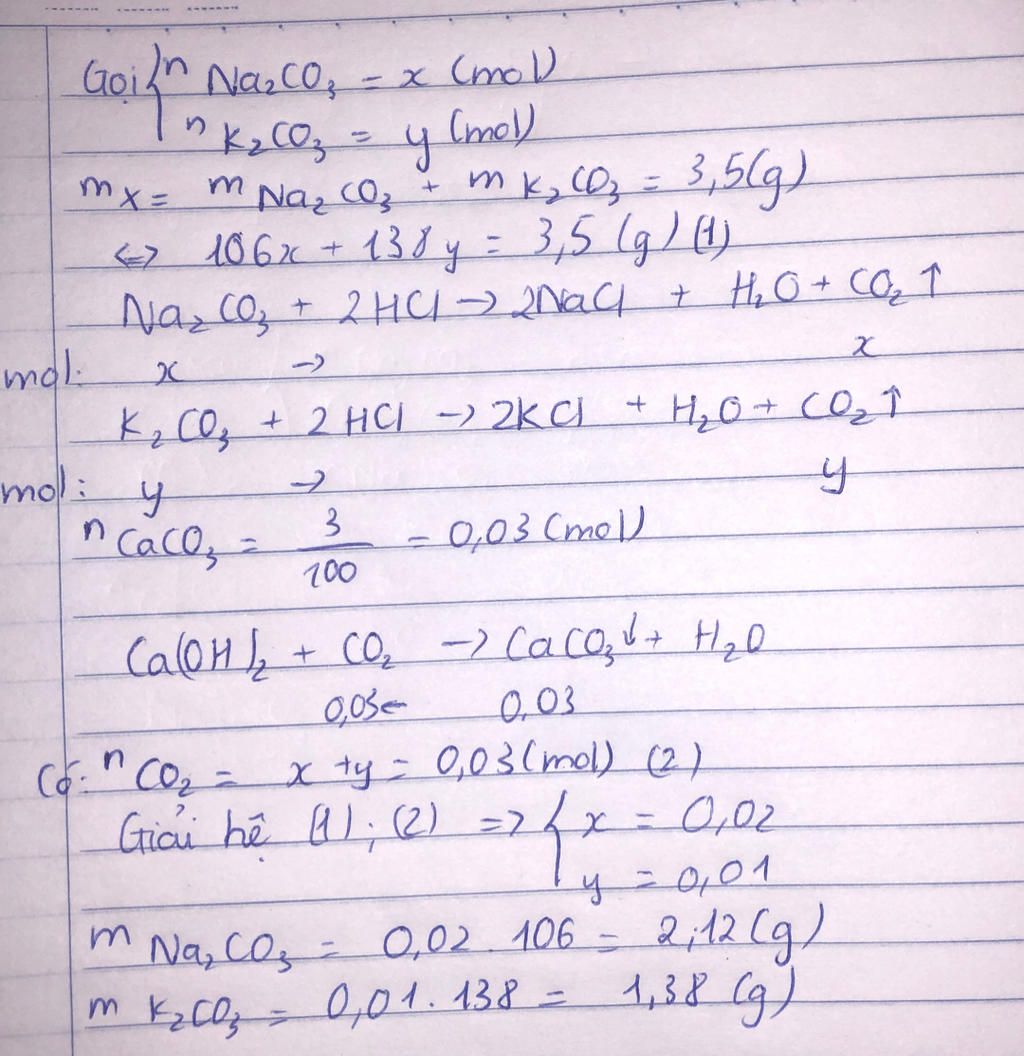 Gọi { n Na₂CO₃ = x (mol)
n K₂CO₃ = y (mol)
m X = m Na₂CO₃ + m K₂CO₃ = 3,5(g)
<=> 106x + 138y = 3,5 (g) (1)
Na₂CO₃ + 2HCl -> 2NaCl + H₂O + CO₂ ↑
mol: x -> x
K₂CO₃ + 2HCl -> 2KCl + H₂O + CO₂ ↑
mol: y -> y
n CaCO₃ = 3/100 = 0,03 (mol)
Ca(OH)₂ + CO₂ -> CaCO₃↓ + H₂O
0,03 <- 0,03
Có: n CO₂ = x + y = 0,03 (mol) (2)
Giải hệ (1); (2) => { x = 0,02
y = 0,01
m Na₂CO₃ = 0,02 . 106 = 2,12 (g)
m K₂CO₃ = 0,01 . 138 = 1,38 (g)